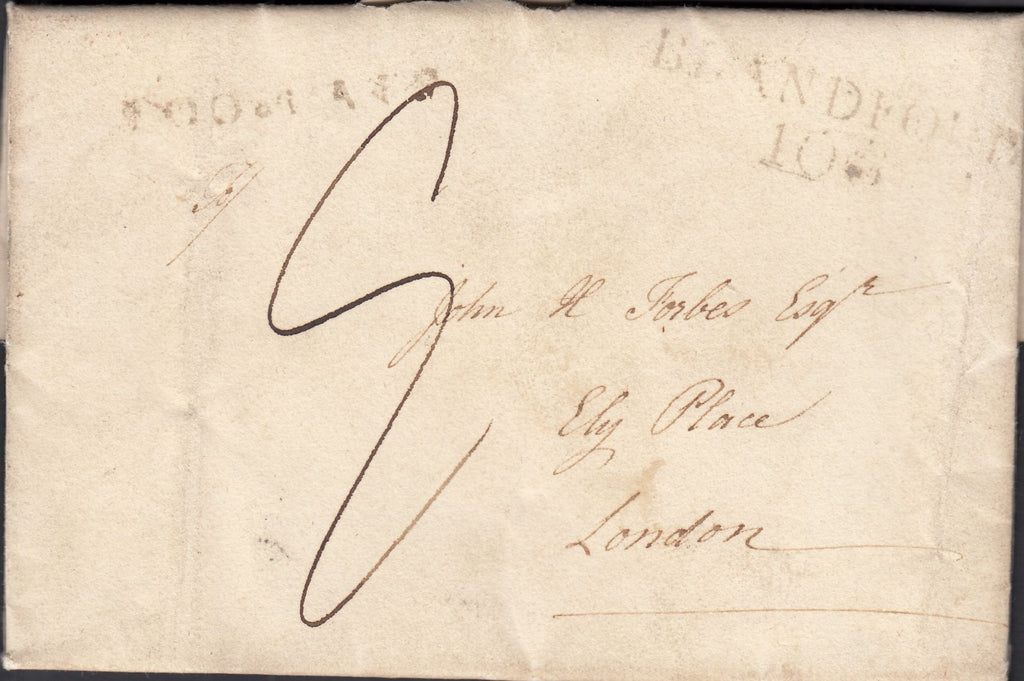 BLANDFORD
108
John H Forbes Esqr
Ely Place
London